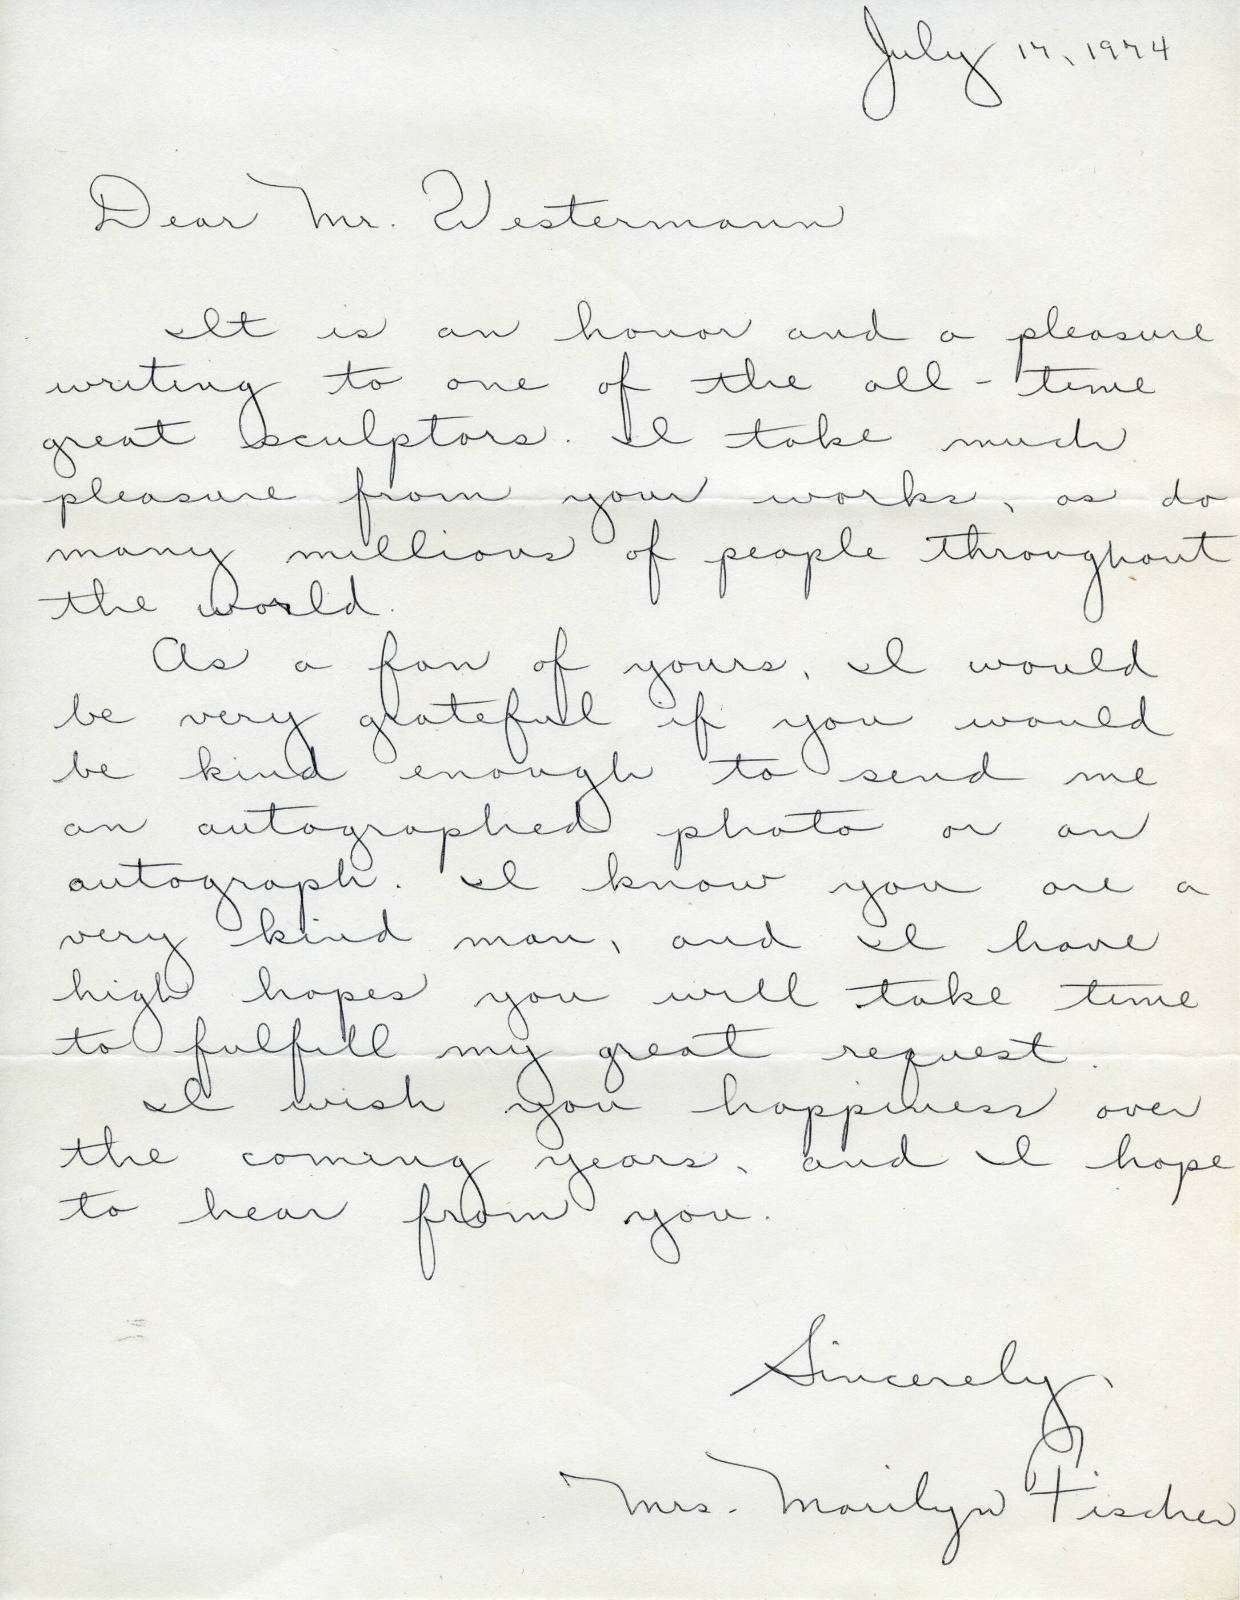 July 17, 1974
Dear Mr. Westermann
It is an honor and a pleasure
writing to one of the all-time
great sculptors. I take much
pleasure from your works, as do
many millions of people throughout
the world.
As a fan of yours, I would
be very grateful if you would
be kind enough to send me
an autographed photo or an
autograph. I know you are a
very kind man, and I have
high hopes you will take time
to fulfill my great request.
I wish you happiness over
the coming years, and I hope
to hear from you.
Sincerely,
Mrs. Marilyn Fischer